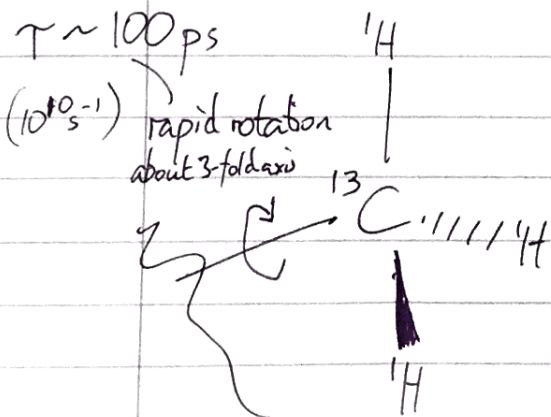 τ ~ 100 ps
(10¹⁰ s⁻¹) rapid rotation
about 3-fold axis
¹H
¹³C
¹H
¹H